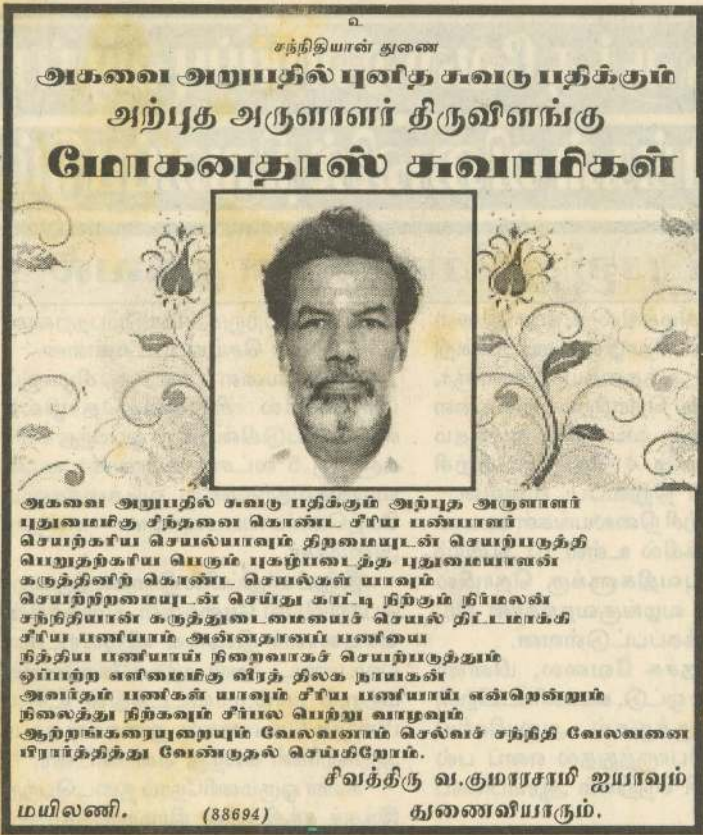 உ
சந்நிதியான் துணை
அகவை அறுபதில் புனித சுவடு பதிக்கும்
அற்புத அருளாளர் திருவிளங்கு
மோகனதாஸ் சுவாமிகள்
அகவை அறுபதில் சுவடு பதிக்கும் அற்புத அருளாளர்
புதுமைமிகு சிந்தனை கொண்ட சீரிய பண்பாளர்
செயற்கரிய செயல்யாவும் திறமையுடன் செயற்படுத்தி
பெறுதற்கரிய பெரும் புகழ்படைத்த புதுமையாளன்
கருத்தினிற் கொண்ட செயல்கள் யாவும்
செயற்றிறமையுடன் செய்து காட்டி நிற்கும் நிர்மலன்
சந்நிதியான் கருத்துடைமையைச் செயல் திட்டமாக்கி
சீரிய பணியாம் அன்னதானப் பணியை
நித்திய பணியாய் நிறைவாகச் செயற்படுத்தும்
ஒப்பற்ற எளிமைமிகு வீரத் திலக நாயகன்
அவர்தம் பணிகள் யாவும் சீரிய பணியாய் என்றென்றும்
நிலைத்து நிற்கவும் சீர்பல பெற்று வாழவும்
ஆற்றங்கரையுறையும் வேலவனாம் செல்வச் சந்நிதி வேலவனை
பிரார்த்தித்து வேண்டுதல் செய்கிறோம்.
சிவத்திரு வ.குமாரசாமி ஐயாவும்
மயிலணி. (88694) துணைவியாரும்.